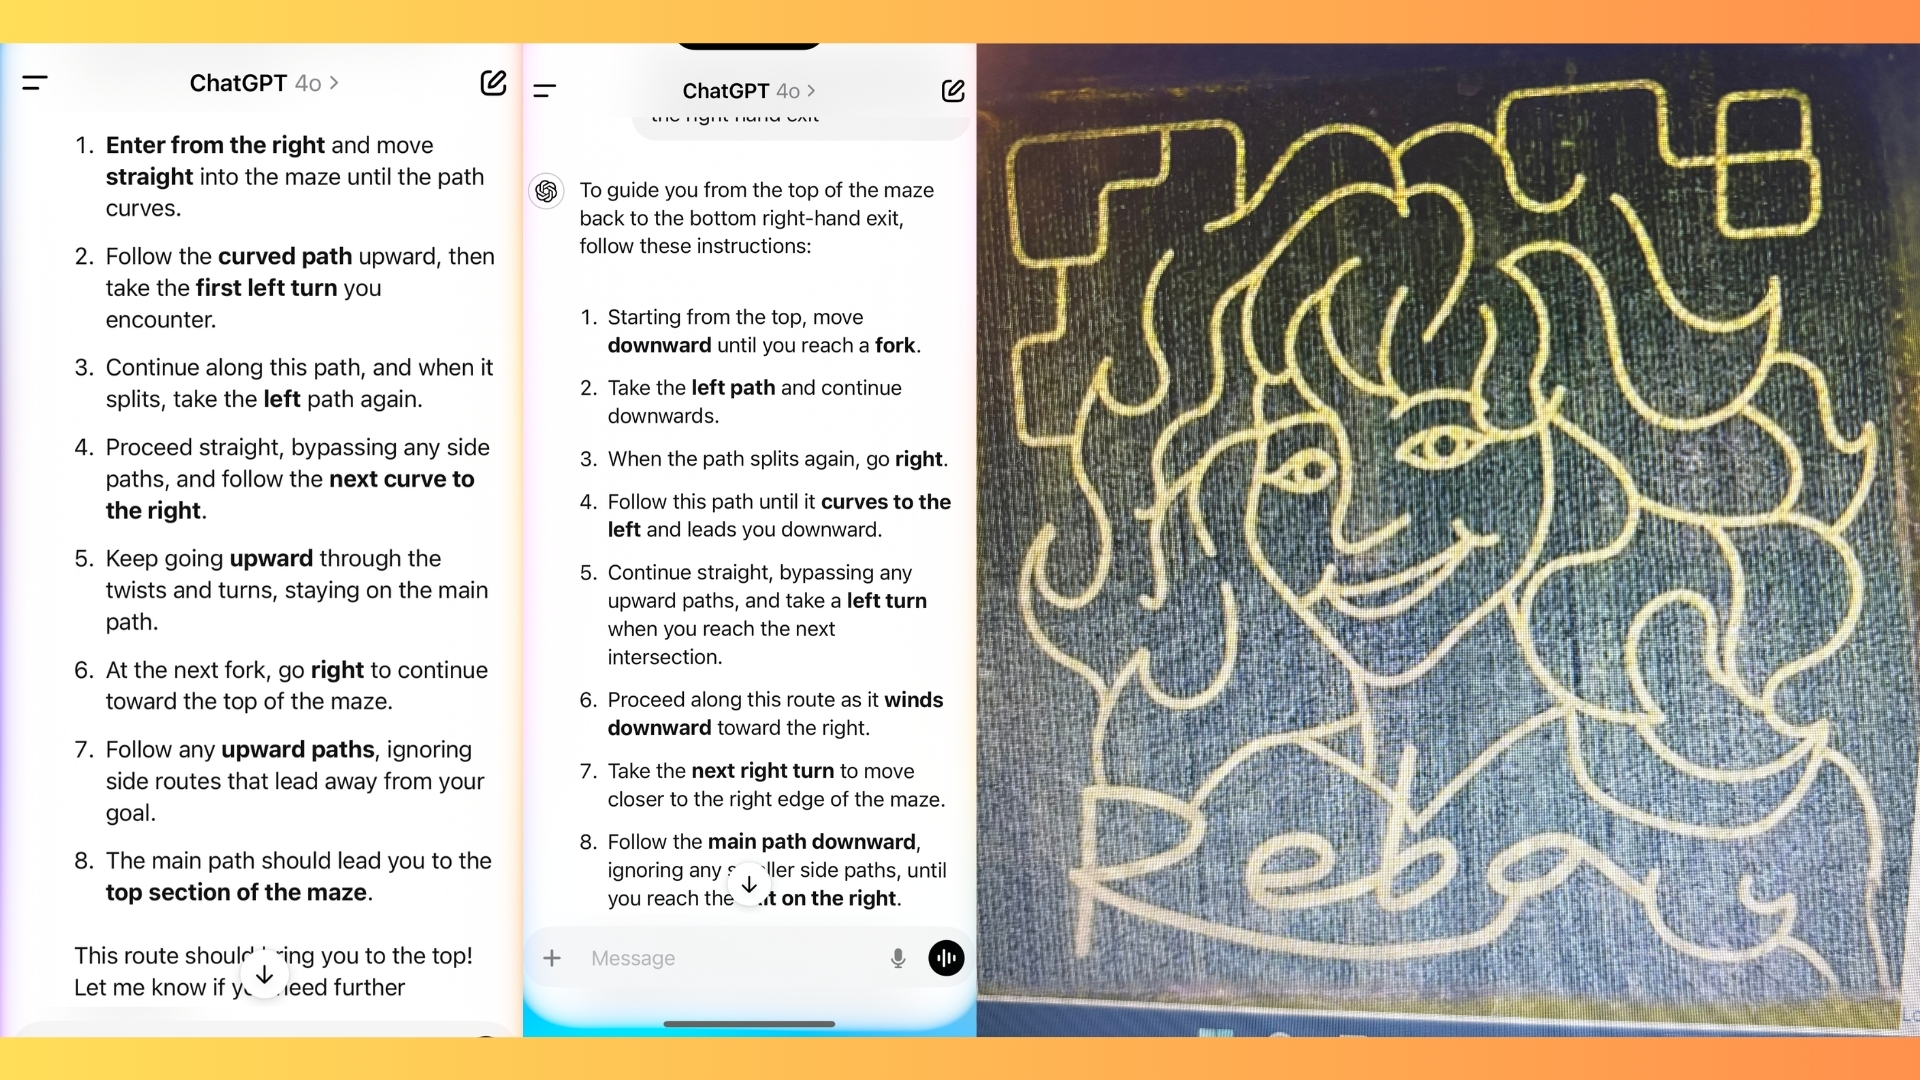 ChatGPT 4o >
1. Enter from the right and move
straight into the maze until the path
curves.
2. Follow the curved path upward, then
take the first left turn you
encounter.
3. Continue along this path, and when it
splits, take the left path again.
4. Proceed straight, bypassing any side
paths, and follow the next curve to
the right.
5. Keep going upward through the
twists and turns, staying on the main
path.
6. At the next fork, go right to continue
toward the top of the maze.
7. Follow any upward paths, ignoring
side routes that lead away from your
goal.
8. The main path should lead you to the
top section of the maze.
This route should bring you to the top!
Let me know if you need further
ChatGPT 4o >
the right hand exit
To guide you from the top of the maze
back to the bottom right-hand exit,
follow these instructions:
1. Starting from the top, move
downward until you reach a fork.
2. Take the left path and continue
downwards.
3. When the path splits again, go right.
4. Follow this path until it curves to the
left and leads you downward.
5. Continue straight, bypassing any
upward paths, and take a left turn
when you reach the next
intersection.
6. Proceed along this route as it winds
downward toward the right.
7. Take the next right turn to move
closer to the right edge of the maze.
8. Follow the main path downward,
ignoring any smaller side paths, until
you reach the exit on the right.
Message
Reba